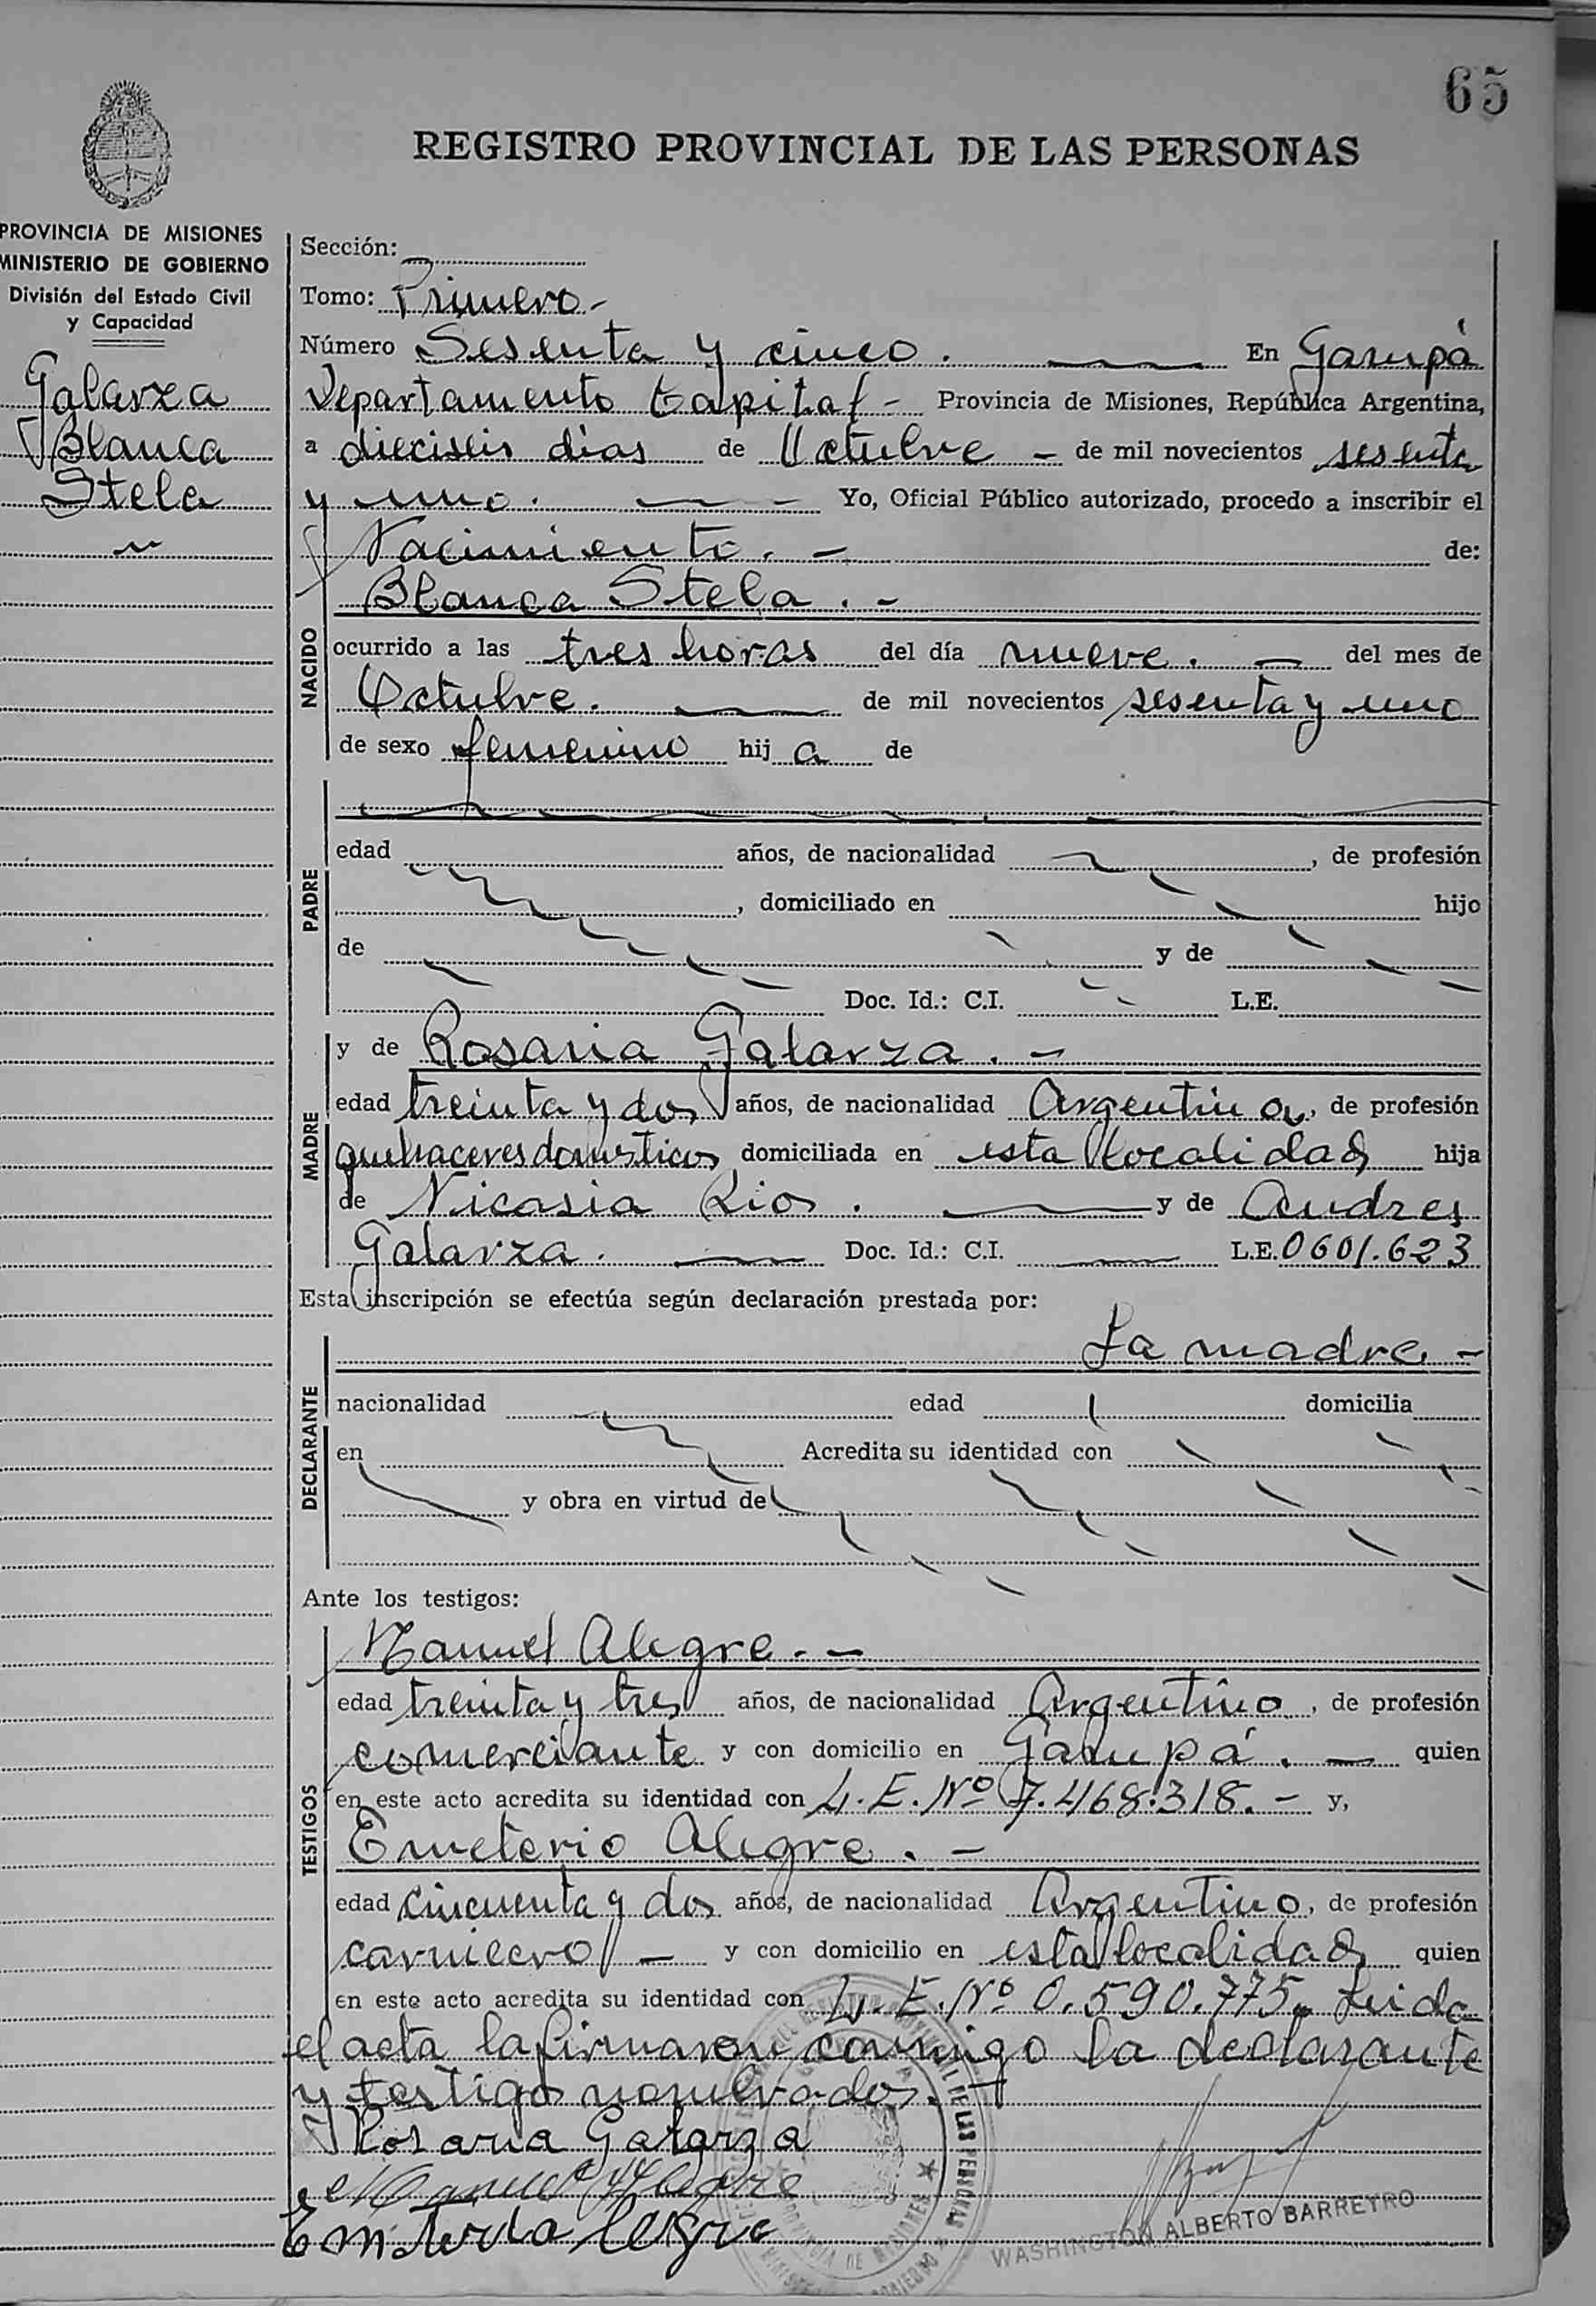 65
REGISTRO PROVINCIAL DE LAS PERSONAS
PROVINCIA DE MISIONES
MINISTERIO DE GOBIERNO
División del Estado Civil
y Capacidad
Galarza
Blanca
Stela
Sección:
Tomo: Primero.-
Número Sesenta y cinco. En Garupá
Departamento Capital - Provincia de Misiones, República Argentina,
a dieciseis dias de Octubre - de mil novecientos sesenta
y uno. - Yo, Oficial Público autorizado, procedo a inscribir el
Nacimiento. - de:
Blanca Stela. -
NACIDO
ocurrido a las tres horas del día nueve. - del mes de
Octubre. de mil novecientos sesenta y uno
de sexo femenino hij a de
PADRE
edad años, de nacionalidad , de profesión
, domiciliado en hijo
de y de
Doc. Id.: C.I. L.E.
MADRE
y de Rosaria Galarza. -
edad treinta y dos años, de nacionalidad Argentina, de profesión
quehaceres domesticos domiciliada en esta localidad hija
de Nicasia Rios. y de Andres
Galarza. Doc. Id.: C.I. L.E. 0601.623
Esta inscripción se efectúa según declaración prestada por:
DECLARANTE
La madre -
nacionalidad edad domicilia
en Acredita su identidad con
y obra en virtud de
Ante los testigos:
TESTIGOS
Manuel Alegre. -
edad treinta y tres años, de nacionalidad Argentino, de profesión
comerciante y con domicilio en Garupá. - quien
en este acto acredita su identidad con L.E. Nº 7.468.318. - y,
Emeterio Alegre. -
edad cincuenta y dos años, de nacionalidad Argentino, de profesión
carnicero - y con domicilio en esta localidad quien
en este acto acredita su identidad con L.E. Nº 0.590.775. Leida
el acta la firmaron conmigo la declarante
y testigos nombrados. -
Rosaria Galarza
Manuel Alegre
WASHINGTON ALBERTO BARREYRO